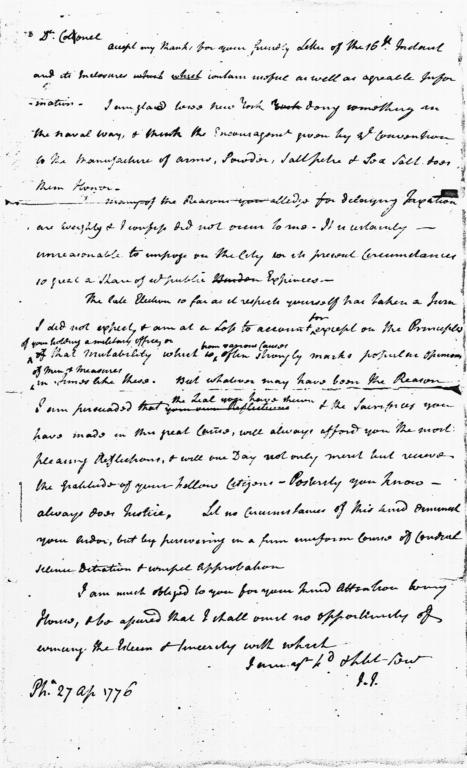 Dr. Colonel
accept my thanks for your friendly Letter of the 16th. Instant
and its Enclosures which which contain useful as well as agreable Infor
mation. I am glad to see New York York doing something in
the naval way, & think the Encouragemt given by ye Convention
to the Manufacture of arms, Powder, Salt petre & Sea Salt does
them Honor—
many of the Reasons you alledge for delaying Taxation
are weighty & I confess did not occur to me— It is certainly—
unreasonable to impose on the City in its present Circumstances
so great a Share of ye public Burden Expences—
The late Election so far as it respects yourself has taken a Turn
I did not expect, & am at a Loss to account for except on the Principles
of your holding a military office, or from various Causes
of that Mutability which is often strongly marks popular opinions
of Men & Measures
in Times like these. But whatever may have been the Reason
the Zeal you have shewn
I am persuaded that your own Reflections & the Sacrifices you
have made in this great Cause, will always afford you the most
pleasing Reflections, & will one Day not only merit but receive
the Gratitude of your fellow Citizens— Posterity you know—
always does Justice. Let no Circumstances of this kind diminish
your ardor, but by persevering in a firm uniform Course of Conduct
silence Detraction & compel Approbation
I am much obliged to you for your kind Attention to my
House, & be assured that I shall omit no opportunity of
evincing the Esteem & Sincerity with which
I am yr & hble Serv
J.J.
Pha. 27 Ap 1776